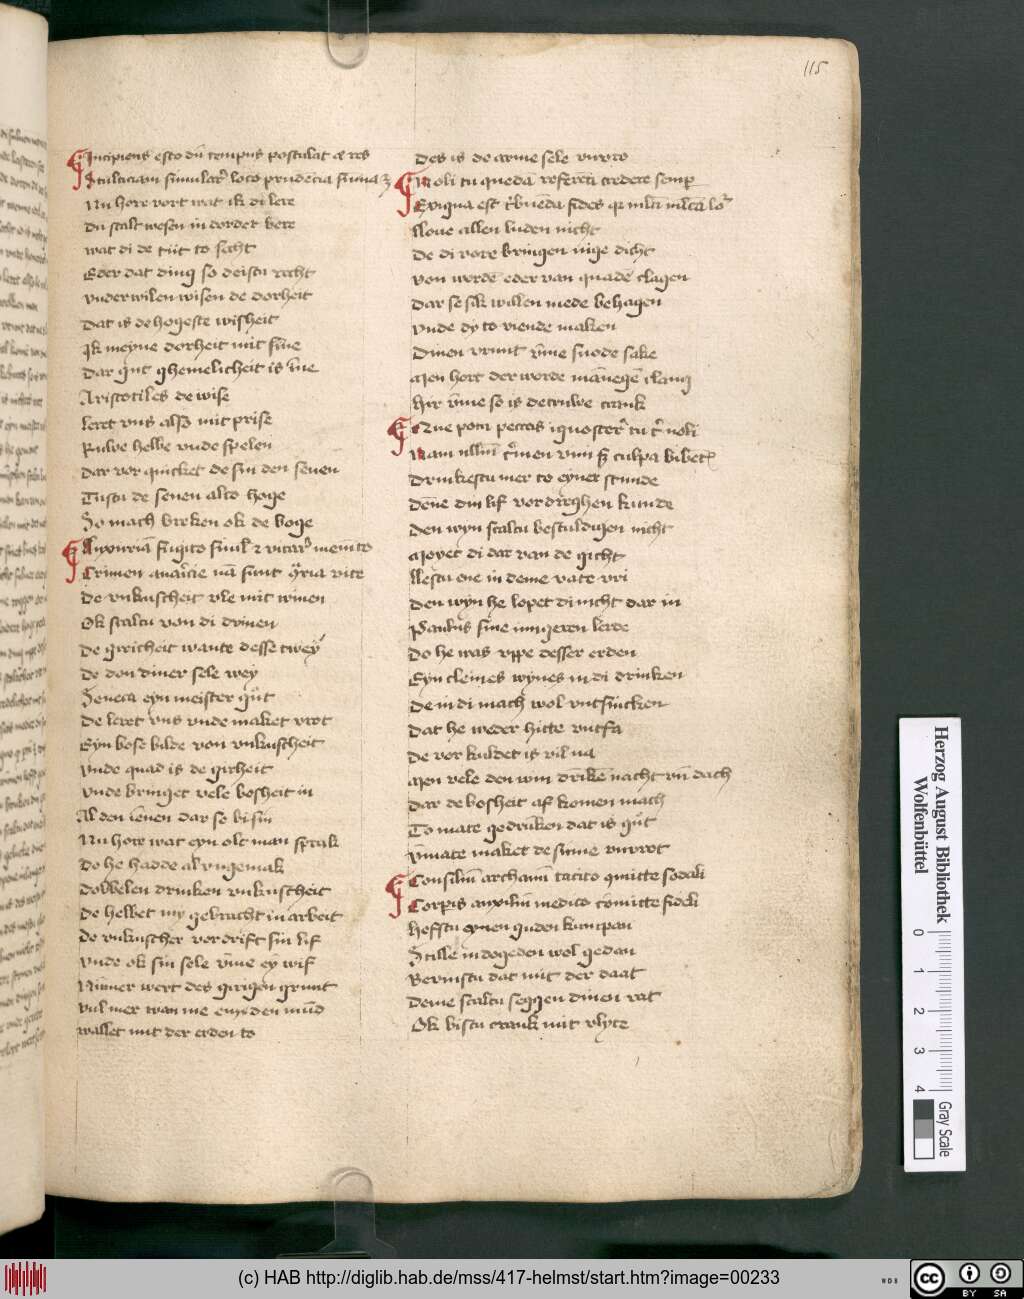 115
Incipiens esto cū tempus postulat et res
Stulticiam simulare loco prudēcia sūma ē
Nu hore vort wat ik di lere
Du scalt wesen in dorder bere
wat di de tiit to secht
Eder dat dinq so deistu recht
vnder wilen wisen de dorheit
Dat is de hogeste wisheit
Ik meyne dorheit mit sīne
Dar ghemelicheit is īne
Aristotiles de wise
leret vns alsz mit prise
Rulve helve vnde spelen
Dar vor quicket de sin den senen
Tustu de senen alto hoge
So mach breken ok de boge
luxuriā fugito simul et vitare memēto
Crimen auaricie nā sunt ria vite
De vnkuscheit vle mit winen
Ok scaltu von di drinen
De gricheit wante desse twey
De don diner sele wey
Seneca eyn meister gůt
De leret vns vnde maket vrot
Eyn bose bilde von vnkuscheit
vnde quad is de girheit
vnde bringet vele bosheit in
Al den ienen dar se bi sin
Nu hore wat eyn olt man sprak
Do he hadde al vngemak
Dobbelen drinken vnkuscheit
De hebbet my gebracht in arbeit
De vnkuscher vordrift sin lif
vnde ok sin sele vīme eȳ wif
Nūmer wert des girigen grunt
vul mer wan me em den mūd
wallet mit der erden to
Des is de arme sele vnvro
Noli tu quedā referēti credere semp
Exigua est tribuēda fides qr mlti mlta lo
Gloue allen luden nicht
De di vore bringen nige dicht
von wordē eder van quadē clagen
Dar se sik willen mede behagen
vnde dy to viende maken
Dinen vrunt vīme snode sake
Men hort der worde mānegē clang
Hir vīme so is de truwe crank
Que potu peccas ignoscere tu tibi noli
Nam nullū crīmen vini sed culpa bibet
Drinkestu mer to eyner stunde
Dēne din lif vordreghen kunde
Den wyn scaltu besculdigen nicht
Mover di dat van de gicht
Gestu ene in deme vate vri
Den wyn he lopet di nicht dar in
Paulus sine iungeren lerde
Do he was vppe desser erden
Eyn cleines wynes in di drinken
De in di mach wol vntsincken
Dat he weder hitte vntfa
De vor kuldet is vil na
Men vele den win drīkē nacht vn dach
Dar de bosheit af komen mach
To mate gedrūken dat is gůt
vnmate maket de sinne vnvrot
Consiliū archanū tacito cōmitte sodali
Corpis auxiliū medico cōmitte fideli
Hefstu eynen guden kumpan
Stille in dogeden wol gedan
Bevinstu dat mit der daat
Deme scaltu seggen dinen rat
Ok bistu crank mit vlyte
Herzog August Bibliothek
Wolfenbüttel
0 1 2 3 4
Gray Scale
(c) HAB http://diglib.hab.de/mss/417-helmst/start.htm?image=00233
WDB
cc BY SA